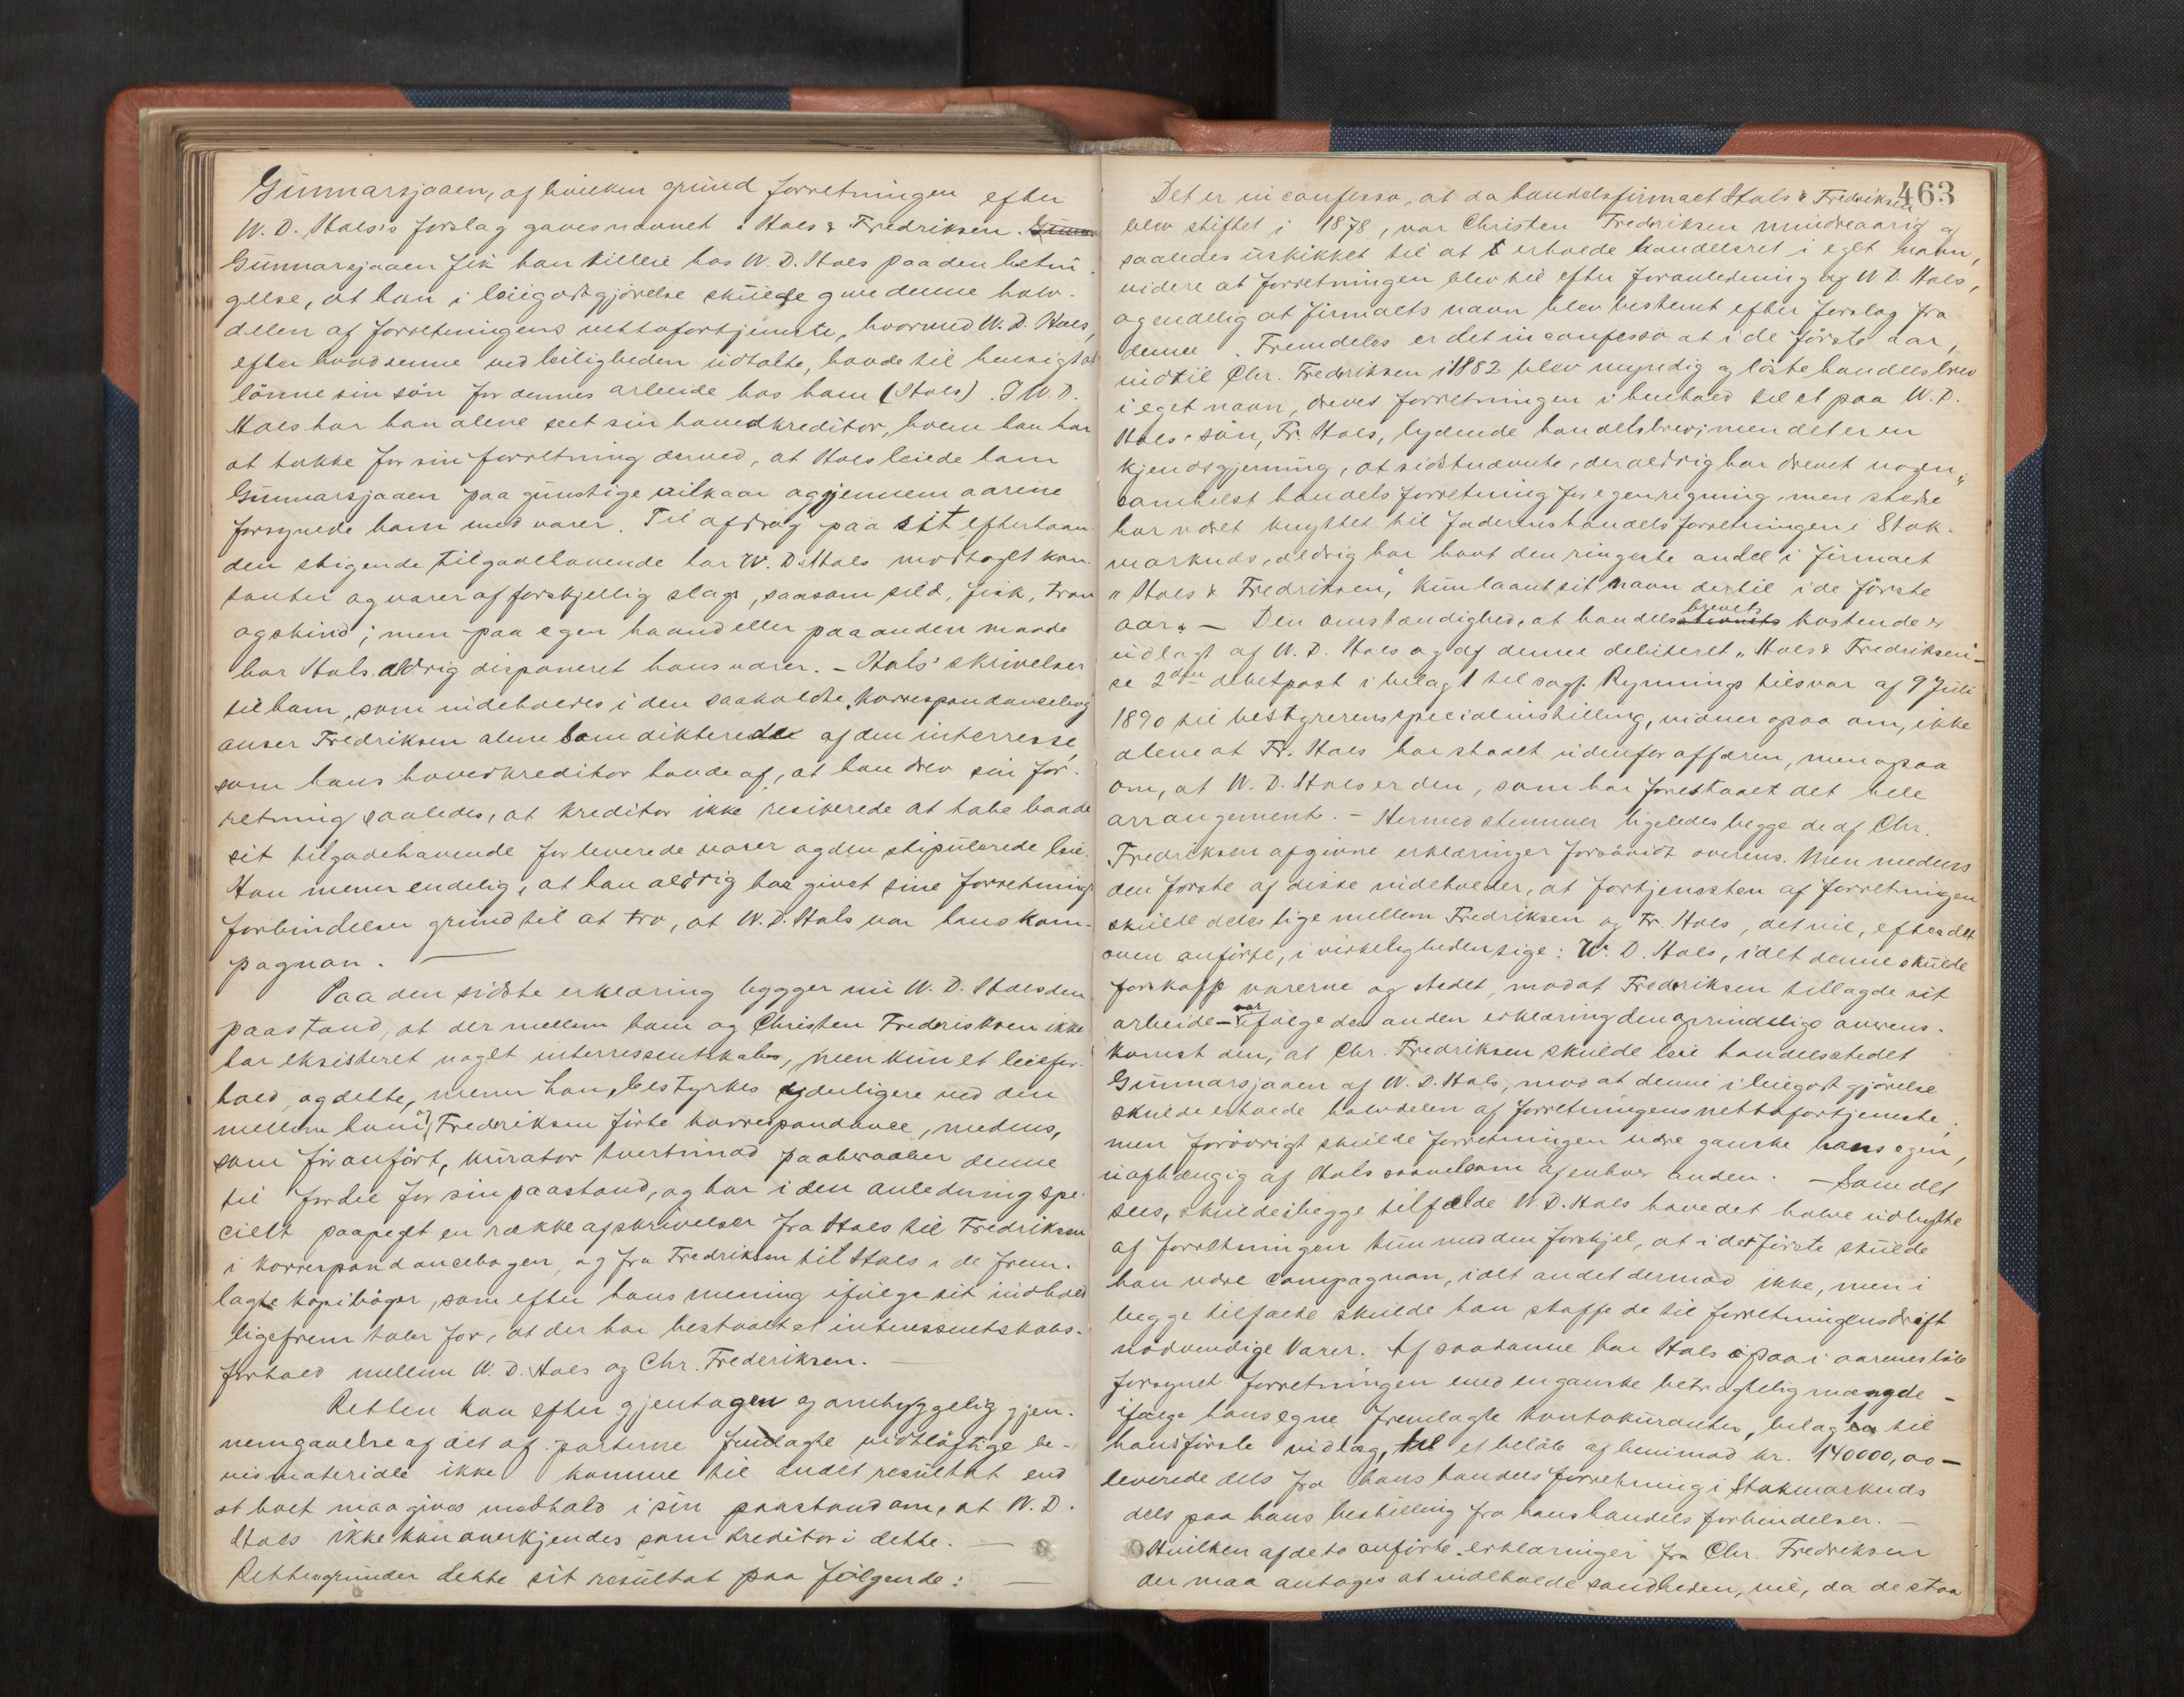 Gunnarsjaaen, af hvilken grund forretningen efter
W. D. Hals's forslag gaves navnet: Hals & Fredriksen.
Gunnarsjaaen fik han tilleie hos W. D. Hals paa den betin-
gelse, at han i leiegodtgjørelse skulde give denne halv-
delen af forretningens nettofortjeneste, hvormed W. D. Hals,
efter hvad denne ved leiligheden udtalte, havde til hensigt at
lønne sin søn for dennes arbeide hos ham (Hals). I W. D.
Hals har han alene seet sin hovedkreditor, hvem han har
at takke for sin forretning derved, at Hals leiede ham
Gunnarsjaaen paa gunstige vilkaar og gjennem aarene
forsynede ham med varer. Til afdrag paa sit efterhaan-
den stigende tilgodehavende har W. D. Hals modtaget kon-
tanter og varer af forskjellig slags, saasom sild, fisk, tran
og skind; men paa egen haand eller paa anden maade
har Hals aldrig disponeret hans varer. – Hals' skrivelser
til ham, som indeholdes i den saakaldte "korrespondancebog"
anser Fredriksen alene som dikterede af den interresse,
som hans hovedkreditor havde af, at han drev sin for-
retning saaledes, at kreditor ikke resikerede at tabe baade
sit tilgodehavende for leverede varer og den stipulerede leie.
Han mener endelig, at han aldrig har givet sine forretnings-
forbindelser grund til at tro, at W. D. Hals var hans kom-
pagnon. —
Paa den sidste erklæring bygger nu W. D. Hals den
paastand, at der mellem ham og Christen Frederiksen ikke
har eksisteret noget interressentskab, men kun et leiefor-
hold, og dette, mener han, bestyrkes yderligere ved den
mellem ham og Fredriksen førte korrespondance, medens,
som før anført, kurator tvertimod paaberaaber denne
til fordel for sin paastand, og har i den anledning spe-
cielt paapeget en række af skrivelser fra Hals til Fredriksen
i korrespondancebogen, og fra Fredriksen til Hals i de frem-
lagte kopibøger, som efter hans mening ifølge sit indhold
ligefrem taler for, at der har bestaaet et interessentskabs-
forhold mellem W. D. Hals og Chr. Frederiksen. —
Retten kan efter gjentagen og omhyggelig gjen-
nemgaaelse af det af parterne fremlagte vidtløftige be-
vismateriale ikke komme til andet resultat end
at boet maa gives medhold i sin paastand om, at W. D.
Hals ikke kan anerkjendes som kreditor i dette. —
Retten grunder dette sit resultat paa følgende: —
463
Det er in confesso, at da handelsfirmaet Hals & Fredriksen
blev stiftet i 1878, var Christen Fredriksen mindreaarig og
saaledes uskikket til at erholde handelsret i eget navn,
videre at forretningen blev til efter foranledning af W. D. Hals,
og endelig at firmaets navn blev bestemt efter forslag fra
denne. Fremdeles er det in confesso at i de første aar,
indtil Chr. Fredriksen i 1882 blev myndig og løste handelsbrev
i eget navn, dreves forretningen i henhold til et paa W. D.
Hals' søn, Fr. Hals, lydende handelsbrev; men det er en
kjendsgjerning, at sidstnævnte, der aldrig har drevet nogen-
somhelst handelsforretning for egen regning, men stedse
har været knyttet til faderens handelsforretning i Stok-
marknæs, aldrig har havt den ringeste andel i firmaet
"Hals & Fredriksen," kun laant sit navn dertil i de første
aar. – Den omstændighed, at handelsbrevets kostende er
udlagt af W. D. Hals og af denne debiteret "Hals & Fredriksen" –
se 2den debetpost i bilag 1 til sagf. Rynnings tilsvar af 9 Juli
1890 til bestyrerens specialindstilling, vidner ogsaa om, ikke
alene at Fr. Hals har staaet udenfor affæren, men ogsaa
om, at W. D. Hals er den, som har forestaaet det hele
arrangement. – Hermed stemmer ligeledes begge de af Chr.
Fredriksen afgivne erklæringer forsaavidt overens. Men medens
den første af disse indeholder, at fortjenesten af forretningen
skulde deles lige mellem Fredriksen og Fr. Hals, det vil, efter det
oven anførte, i virkeligheden sige: W. D. Hals, idet denne skulde
forskaffe varerne og stedet, mod at Fredriksen tillagde sit
arbeide – var ifølge den anden erklæring den oprindelige overens-
komst den, at Chr. Fredriksen skulde leie handelsstedet
Gunnarsjaaen af W. D. Hals, mod at denne i leiegodtgjørelse
skulde erholde halvdelen af forretningens nettofortjeneste;
men forøvrigt skulde forretningen være ganske hans egen,
uafhængig af Hals saavelsom af enhver anden. – Som det
sees, skulde i begge tilfælde W. D. Hals have det halve udbytte
af forretningen kun med den forskjel, at i det første skulde
han være compagnon, i det andet dermod ikke, men i
begge tilfælde skulde han skaffe de til forretningens drift
nødvendige Varer. Af saadanne har Hals ogsaa i aarenes løb
forsynet forretningen med en ganske betragtelig mængde –
ifølge hans egne fremlagte kontokuranter, bilagene til
hans første indlæg, til et beløb af henimod kr. 140000,00 –
leverede dels fra hans handelsforretning i Stokmarknæs
dels paa hans bestilling fra hans handelsforbindelser. —
Hvilken af de to anførte erklæringer fra Chr. Fredriksen
der maa antages at indeholde sandheden, vil, da de staa